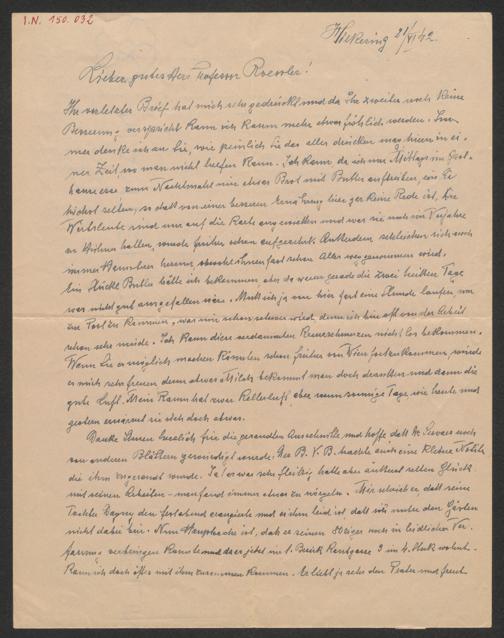 I.N. 150.032
21/VI 42
Lieber guter Herr Professor Roessler!
Ihr vorletzter Brief hat mich sehr gedrückt und da Ihr zweiter noch keine
Besserung verspricht kann ich kaum mehr etwas fröhlich werden. Im-
mer denke ich an Sie, wie peinlich Sie das alles drücken mag hier in ei-
ner Zeit, wo man nicht helfen kann. Ich kann da ich nur Mittags im Gast-
hause esse zum Nachtmahl nur etwas Brot mit Butter auftreiben, ein Ei
höchst selten, so dass von einer besseren hier gar keine Rede ist. Die
Wirtsleute sind nur auf die Karte angewiesen und war sie noch im Vorjahre
an Hühner halten, wurde heuer schon Außerdem schleichen sich auch
immer herum, Ihnen fast schon Alles weggenommen wird.
Ein Stückl Butter hätte ich bekommen aber da waren gerade die zwei heißen Tage
was nicht gut ausgefallen wäre. Muss ich ja von hier fast eine Stunde laufen, um
zur Post zu kommen, was mir schon schwer wird, denn ich bin oft von der Arbeit
schon sehr müde. Ich kann diese verdammten nicht los bekommen.
Wenn Sie es möglich machen könnten schon früher von Wien fortzukommen, würde
es mich sehr freuen denn etwas Milch bekommt man doch dorselbst und dann die
gute Luft. Mein Raum hat zwar Kellerluft, aber wenn sonnige Tage, wie heute und
gestern erwärmt sie sich doch etwas.
Danke Ihnen herzlich für die gesandten Ausschnitte und hoffe, daß noch
von anderen Blättern gewürdigt wurde. Der B. V. B. brachte auch eine kleine Notiz
die ihm zugesandt wurde. Ja! er war sehr fleißig hatte aber äußerst selten Glück
mit seinen Arbeiten - man fand immer etwas zu nörgeln. Mir schrieb er, daß seine
Tochter den fort sind und es ihm leid ist daß wir unter den Gästen
nicht dabei sein. Nun Hauptsache ist, daß er seinen 80ziger noch in leidlicher Ver-
fassung verbringen konnte und da er jetzt im 1. Bezirk 3 im 4. Stock wohnt.
Kann ich doch öfters mit ihm zusammen kommen. Er liebt ja sehr den Prater und freut